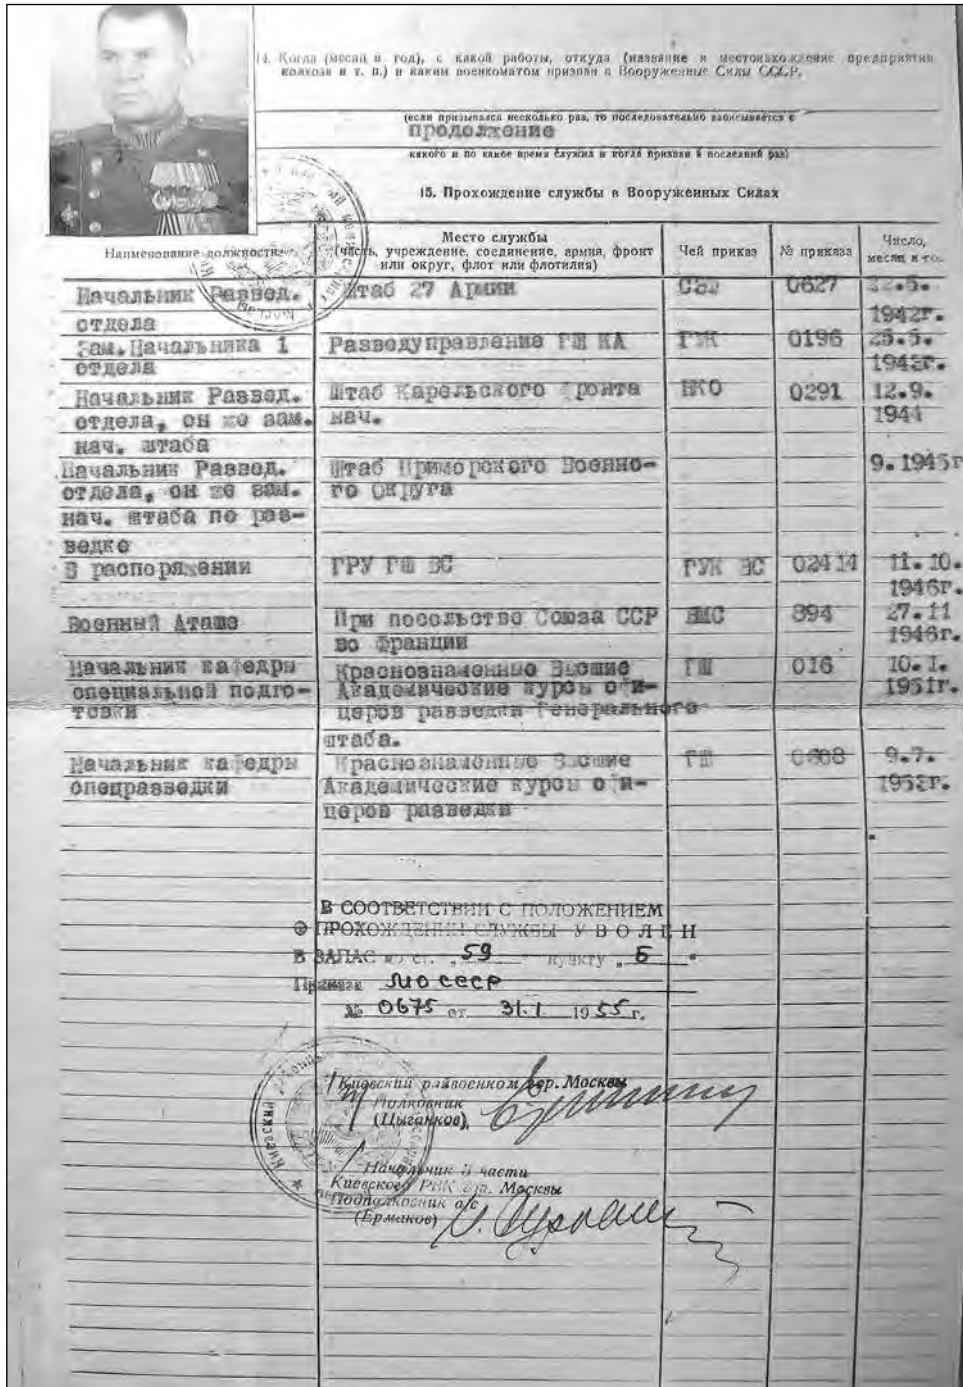 14. Когда (месяц и год), с какой работы, откуда (название и местонахождение предприятия
колхоза и т. п.) и каким военкоматом призван в Вооруженные Силы СССР.
(если призывался несколько раз, то последовательно записывается с
продолжение
какого и по какое время служил и когда призван в последний раз)
15. Прохождение службы в Вооруженных Силах
Наименование должности
Место службы
(часть, учреждение, соединение, армия, фронт
или округ, флот или флотилия)
Чей приказ
№ приказа
Число,
месяц и го
Начальник Развед.
отдела
Штаб 27 Армии
0627
1942г.
Зам.Начальника 1
отдела
Разведуправление ГШ КА
ГУК
0196
Начальник Развед.
отдела, он же зам.
нач. штаба
Штаб Карельского фронта
нач.
НКО
0291
12.9.
1944
Начальник Развед.
отдела, он же зам.
нач. штаба по раз-
ведке
Штаб Приморского Военно-
го Округа
9.1945г
В распоряжении
ГРУ ГШ ВС
ГУК ВС
02414
11.10.
1946г.
Военный Аташе
При посольстве Союза ССР
во Франции
894
27.11
1946г.
Начальник кафедры
специальной подго-
товки
Краснознаменные Высшие
Академические курсы офи-
церов разведки Генерального
штаба.
ГШ
016
10.1.
1951г.
Начальник кафедры
спецразведки
Краснознаменные Высшие
Академические курсы офи-
церов разведки
ГШ
9.7.
В СООТВЕТСТВИИ С ПОЛОЖЕНИЕМ
О ПРОХОЖДЕНИИ СЛУЖБЫ УВОЛЕН
В ЗАПАС по ст. „59" пункту „Б"
Приказ МО СССР
№ 0675 от 31.1 1955 г.
Киевский райвоенком гор. Москвы
Полковник
(Цыганков)
Начальник части
Киевского РВК гор. Москвы
Подполковник а/с
(Ермаков)
Киевский